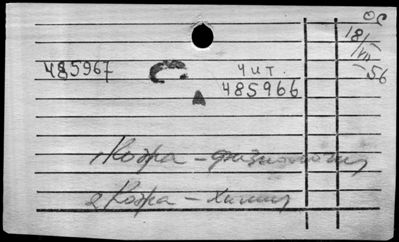 ОС
18/VII–56
485967 чит.
485966
1 Кофра – физиолог
2 Кофра – химии